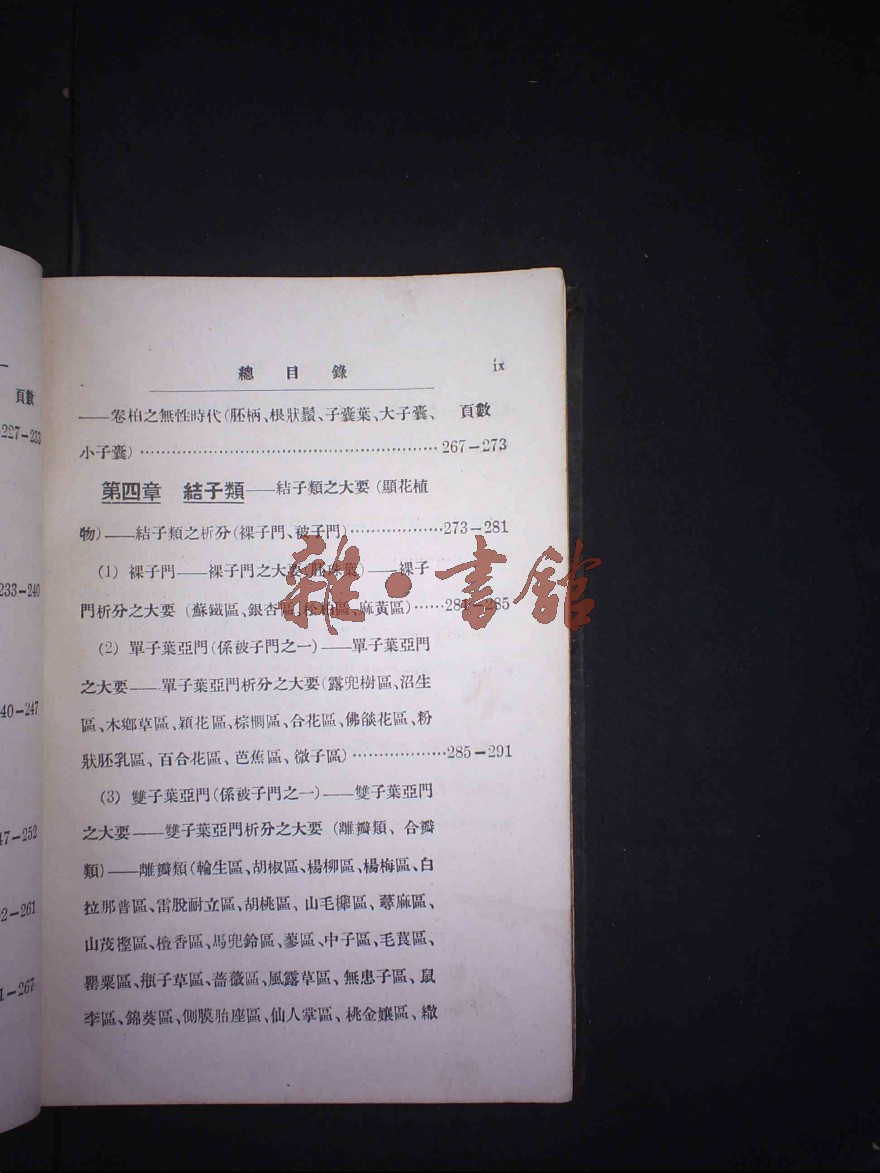 頁數
227-233
233-240
40-247
47-252
2-261
1-267
總目錄
ix
頁數
——卷柏之無性時代(胚柄、根狀鬚、子囊葉、大子囊、
小子囊)……267-273
第四章 結子類——結子類之大要(顯花植
物)——結子類之析分(裸子門、被子門)……273-281
(1) 裸子門——裸子門之大要(胚珠葉)——裸子
門析分之大要(蘇鐵區、銀杏區、松柏區、麻黃區)……281-285
(2) 單子葉亞門(係被子門之一)——單子葉亞門
之大要——單子葉亞門析分之大要(露兜樹區、沼生
區、木鄉草區、穎花區、棕櫚區、合花區、佛燄花區、粉
狀胚乳區、百合花區、芭蕉區、微子區)……285-291
(3) 雙子葉亞門(係被子門之一)——雙子葉亞門
之大要——雙子葉亞門析分之大要(離瓣類、合瓣
類)——離瓣類(輪生區、胡椒區、楊柳區、楊梅區、白
拉那普區、雷脫耐立區、胡桃區、山毛櫸區、蕁麻區、
山茂樫區、檀香區、馬兜鈴區、蓼區、中子區、毛茛區、
罌粟區、瓶子草區、薔薇區、風露草區、無患子區、鼠
李區、錦葵區、側膜胎座區、仙人掌區、桃金孃區、繖
雜·書館